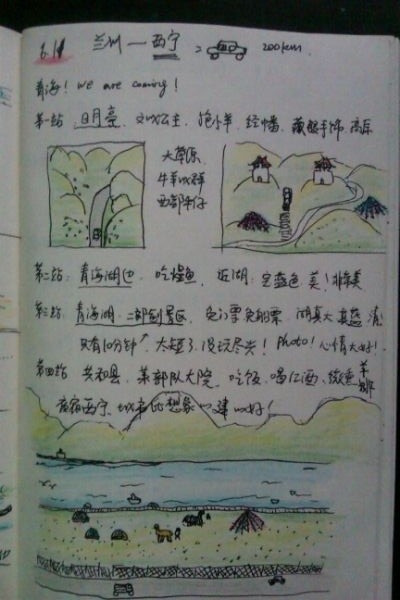 6.11 兰州—西宁 200km
青海! we are coming!
第一站: 日月亭、文成公主、抱小羊、经幡、藏服手饰、高原
大草原、
牛羊成群
西部牛仔
第二站: 青海湖边、吃煌鱼、近湖、是蓝色、美! 非常美
第三站: 青海湖二郎剑景区、免门票免船票、湖真大真蓝 清!
只有10分钟、太短了、没玩尽兴! Photo! 心情大好!
第四站 共和县、某部队大院、吃饭、喝红酒、
夜宿西宁、城市比想象的建的好!